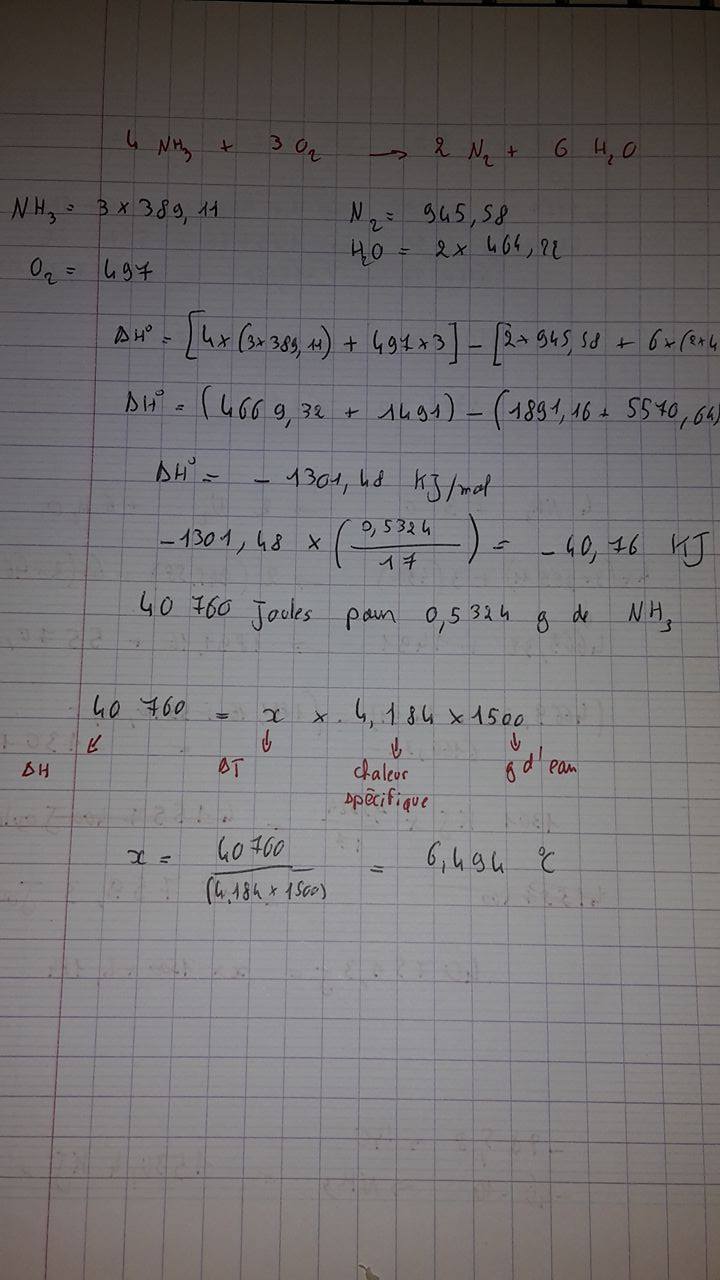 4 NH₃ + 3 O₂ → 2 N₂ + 6 H₂O
NH₃ = 3 × 389,11
N₂ = 945,58
H₂O = 2 × 464,22
O₂ = 497
ΔH° = [4×(3×389,11) + 497×3] − [2×945,58 + 6×(2×4
ΔH° = (4669,32 + 1491) − (1891,16 + 5570,64)
ΔH° = − 1301,48 KJ/mol
−1301,48 × (0,5324 / 17) = −40,76 KJ
40 760 Joules pour 0,5324 g de NH₃
40 760 = x × 4,184 × 1500
↓ ↓ ↓ ↓
ΔH ΔT chaleur spécifique g d'eau
x = 40760 / (4,184 × 1500) = 6,494 °C